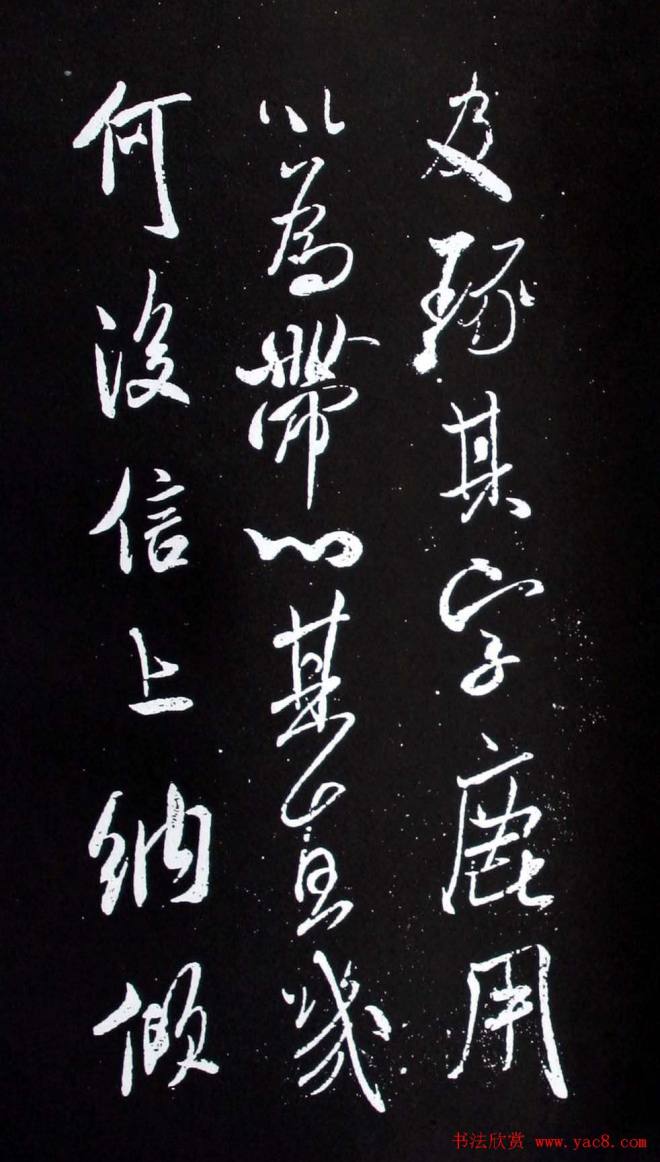 及琢其字鹿用
以為帶其直幾
何後信上納傾
书法欣赏 www.yac8.com